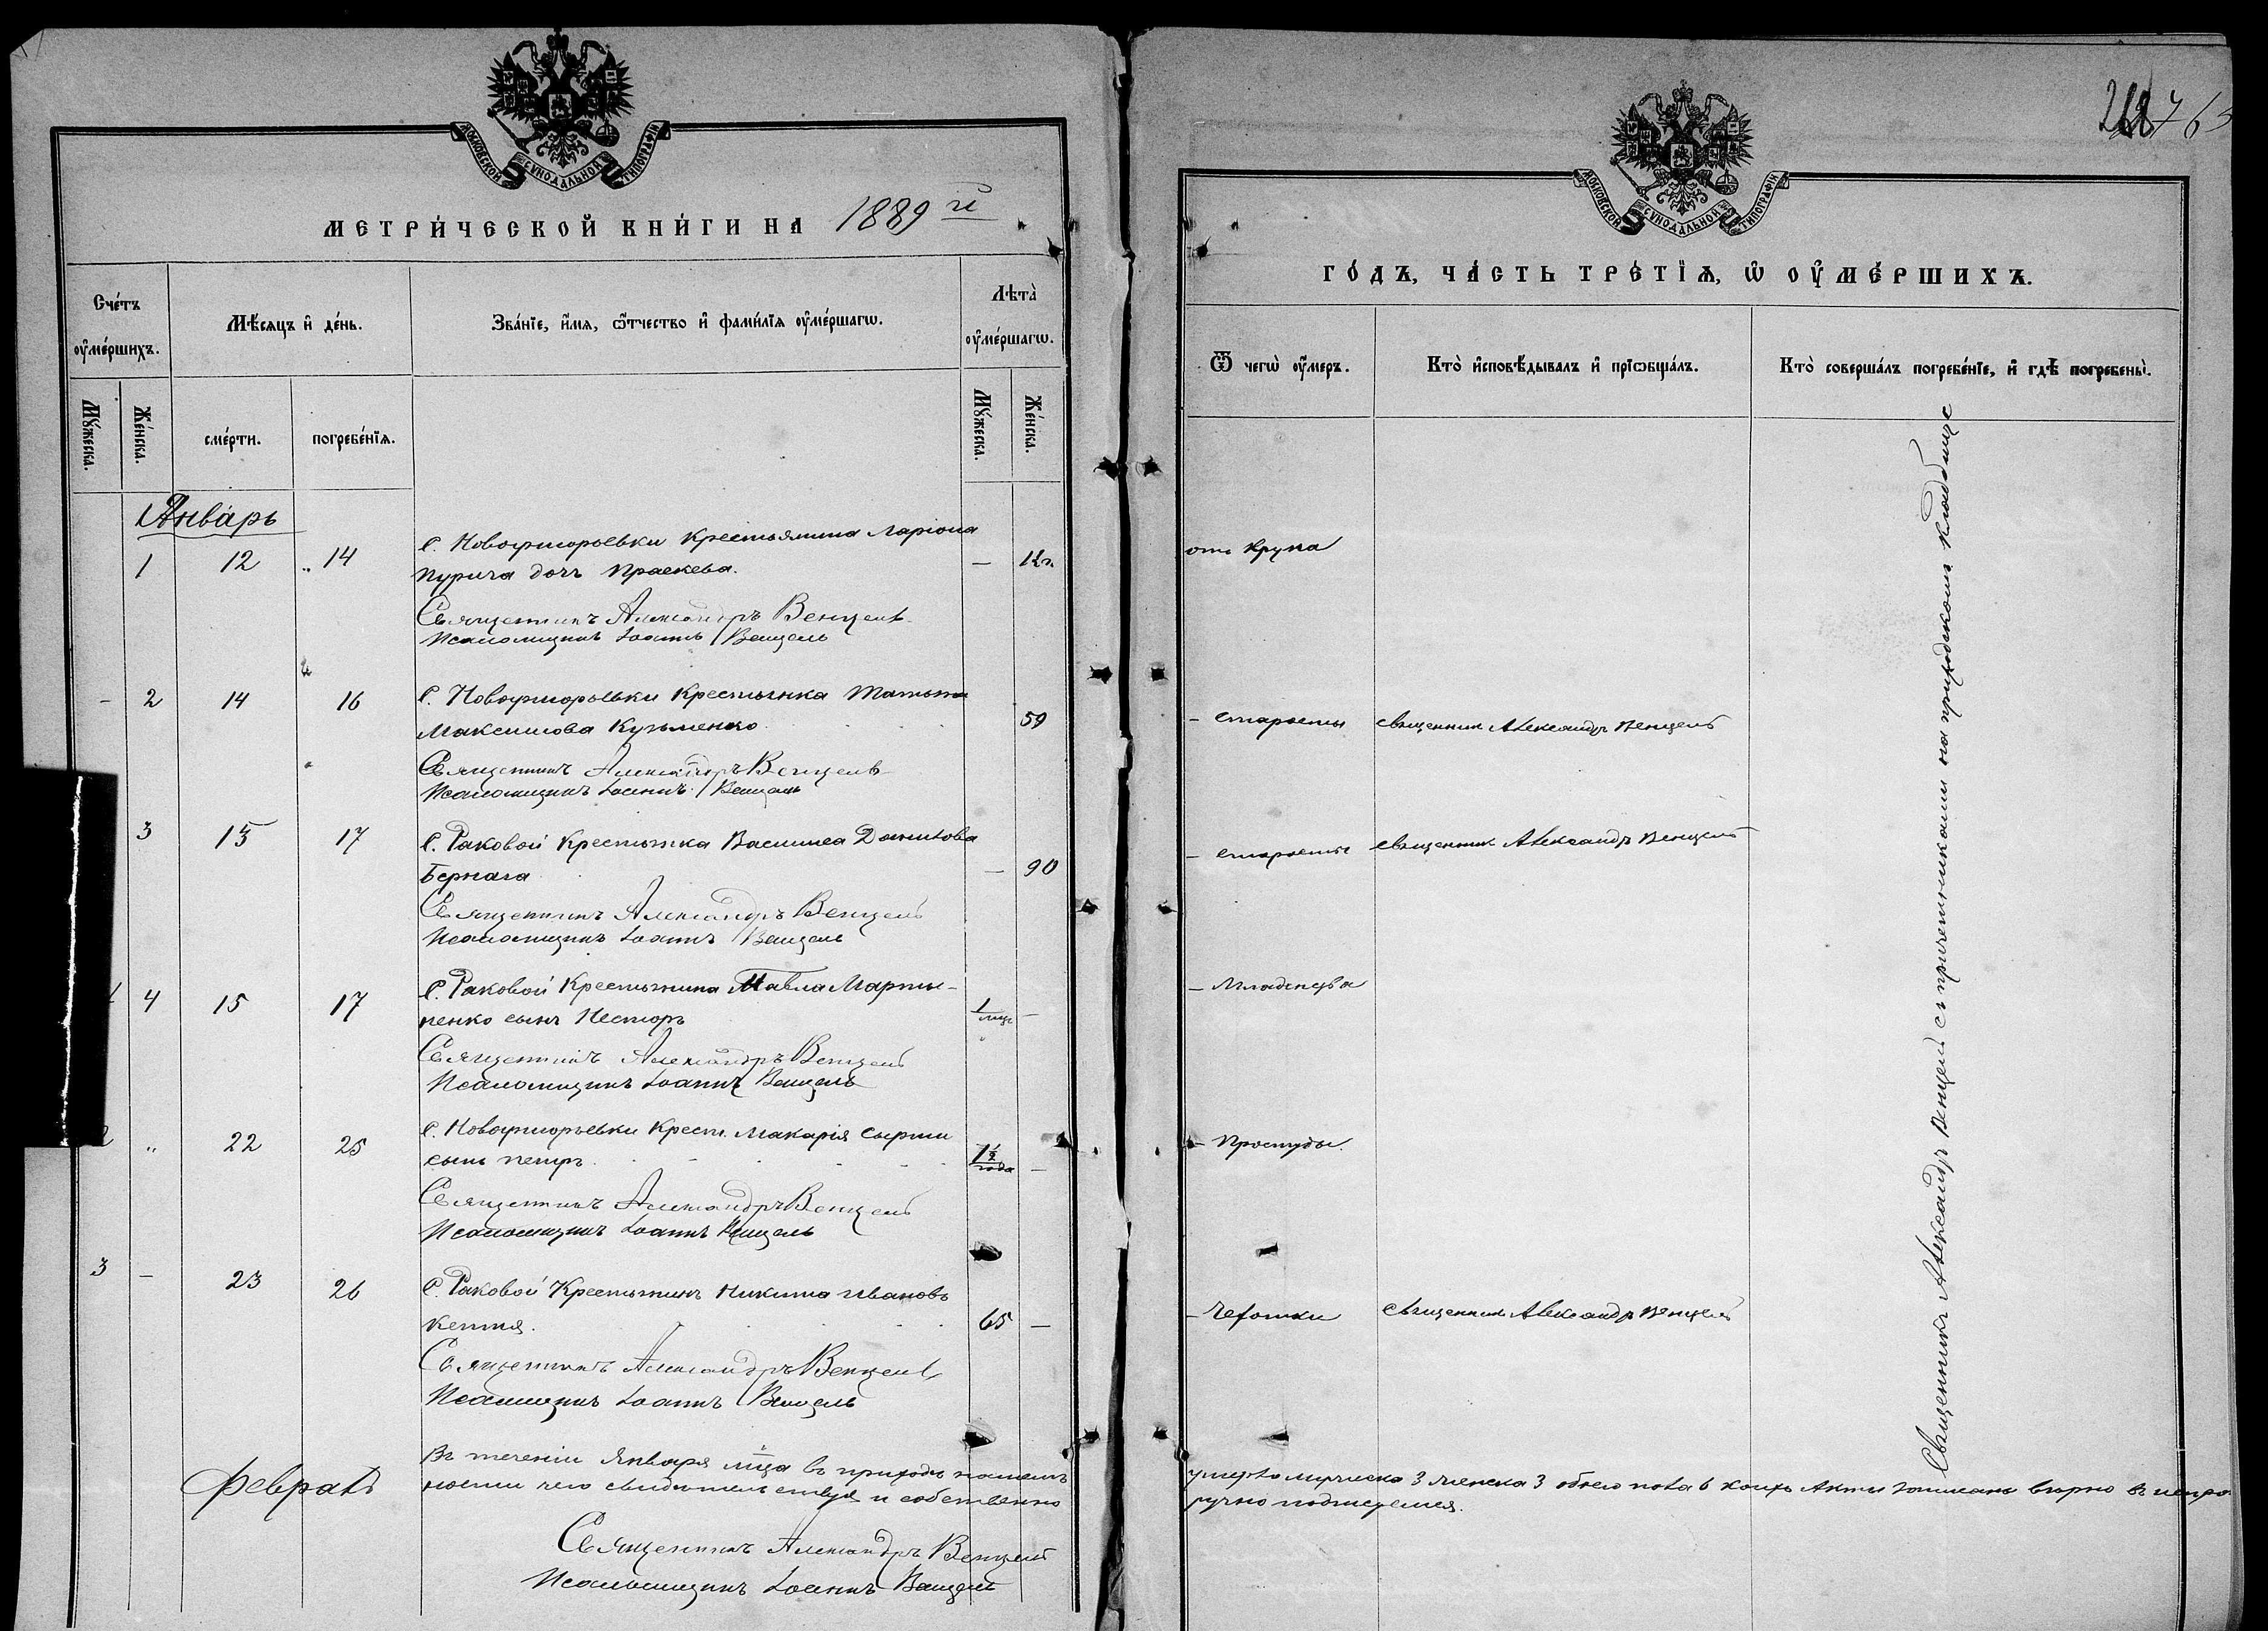 МОСКОВСКОЙ СУНОДАЛЬНОЙ ТИПОГРАФІИ
МЕТРИ́ЧЕСКОЙ КНИ́ГИ НА 1889 й
Сче́тъ ᲂу҆ме́ршихъ.
Мѣ́сяцъ и҆ де́нь.
Зва́нїе, и҆́мя, ѻ҆́тчество и҆ фами́лїя ᲂу҆ме́ршагѡ.
Лѣта̀ ᲂу҆ме́ршагѡ.
Мꙋ́жеска.
Же́нска.
сме́рти.
погребе́нїя.
Мꙋ́жеска.
Же́нска.
Январь
1 12 14 С. Новогригорьевки Крестьянина Ларіона
Пурича дочь Праскева. —
Священникъ Александръ Венцель
Псаломщикъ Іоаннъ Венцель
- 2 14 16 С. Новогригорьевки Крестьянка Татьяна
Максимова Кузьменко 59
Священникъ Александръ Венцель
Псаломщикъ Іоаннъ Венцель
3 15 17 С. Раковой Крестьянка Василиса Данилова
Бернага — 90
Священникъ Александръ Венцель
Псаломщикъ Іоаннъ Венцель
4 15 17 С. Раковой Крестьянина Павла Марты-
ненко сынъ Несторъ 1 мцъ —
Священникъ Александръ Венцель
Псаломщикъ Іоаннъ Венцель
2 „ 22 25 С. Новогригорьевки Крест. Макарія
сынъ Петръ 1½ года —
Священникъ Александръ Венцель
Псаломщикъ Іоаннъ Венцель
3 — 23 26 С. Раковой Крестьянинъ Никита Ивановъ
65 —
Священникъ Александръ Венцель
Псаломщикъ Іоаннъ Венцель
Февраль
Въ теченіи Января мца въ приходѣ нашемъ
ности чего свидѣтельствуя и собственно
Священникъ Александръ Венцель
Псаломщикъ Іоаннъ Венцель
МОСКОВСКОЙ СУНОДАЛЬНОЙ ТИПОГРАФІИ
ГО́ДЪ, ЧА́СТЬ ТРЕ́ТЇѦ, Ѡ҆ ᲂУ҆МЕ́РШИХЪ.
Ѿ чегѡ̀ ᲂу҆́меръ.
Кто̀ и҆сповѣ́дывалъ и҆ прїѡбща́лъ.
Кто̀ соверша́лъ погребе́нїе, и҆ гдѣ̀ погребены̀.
отъ Крупа
- старости священник Александръ Венцель
- старости священник Александръ Венцель
- Младенства
- Простуды.
- Чехотки священник Александръ Венцель
Священникъ Александръ Венцель съ причетниками на приходскомъ кладбище
умерло мужеска 3 женска 3 обоего пола 6 коихъ Акты записаны вѣрно въ непро-
ручно подписуемся.